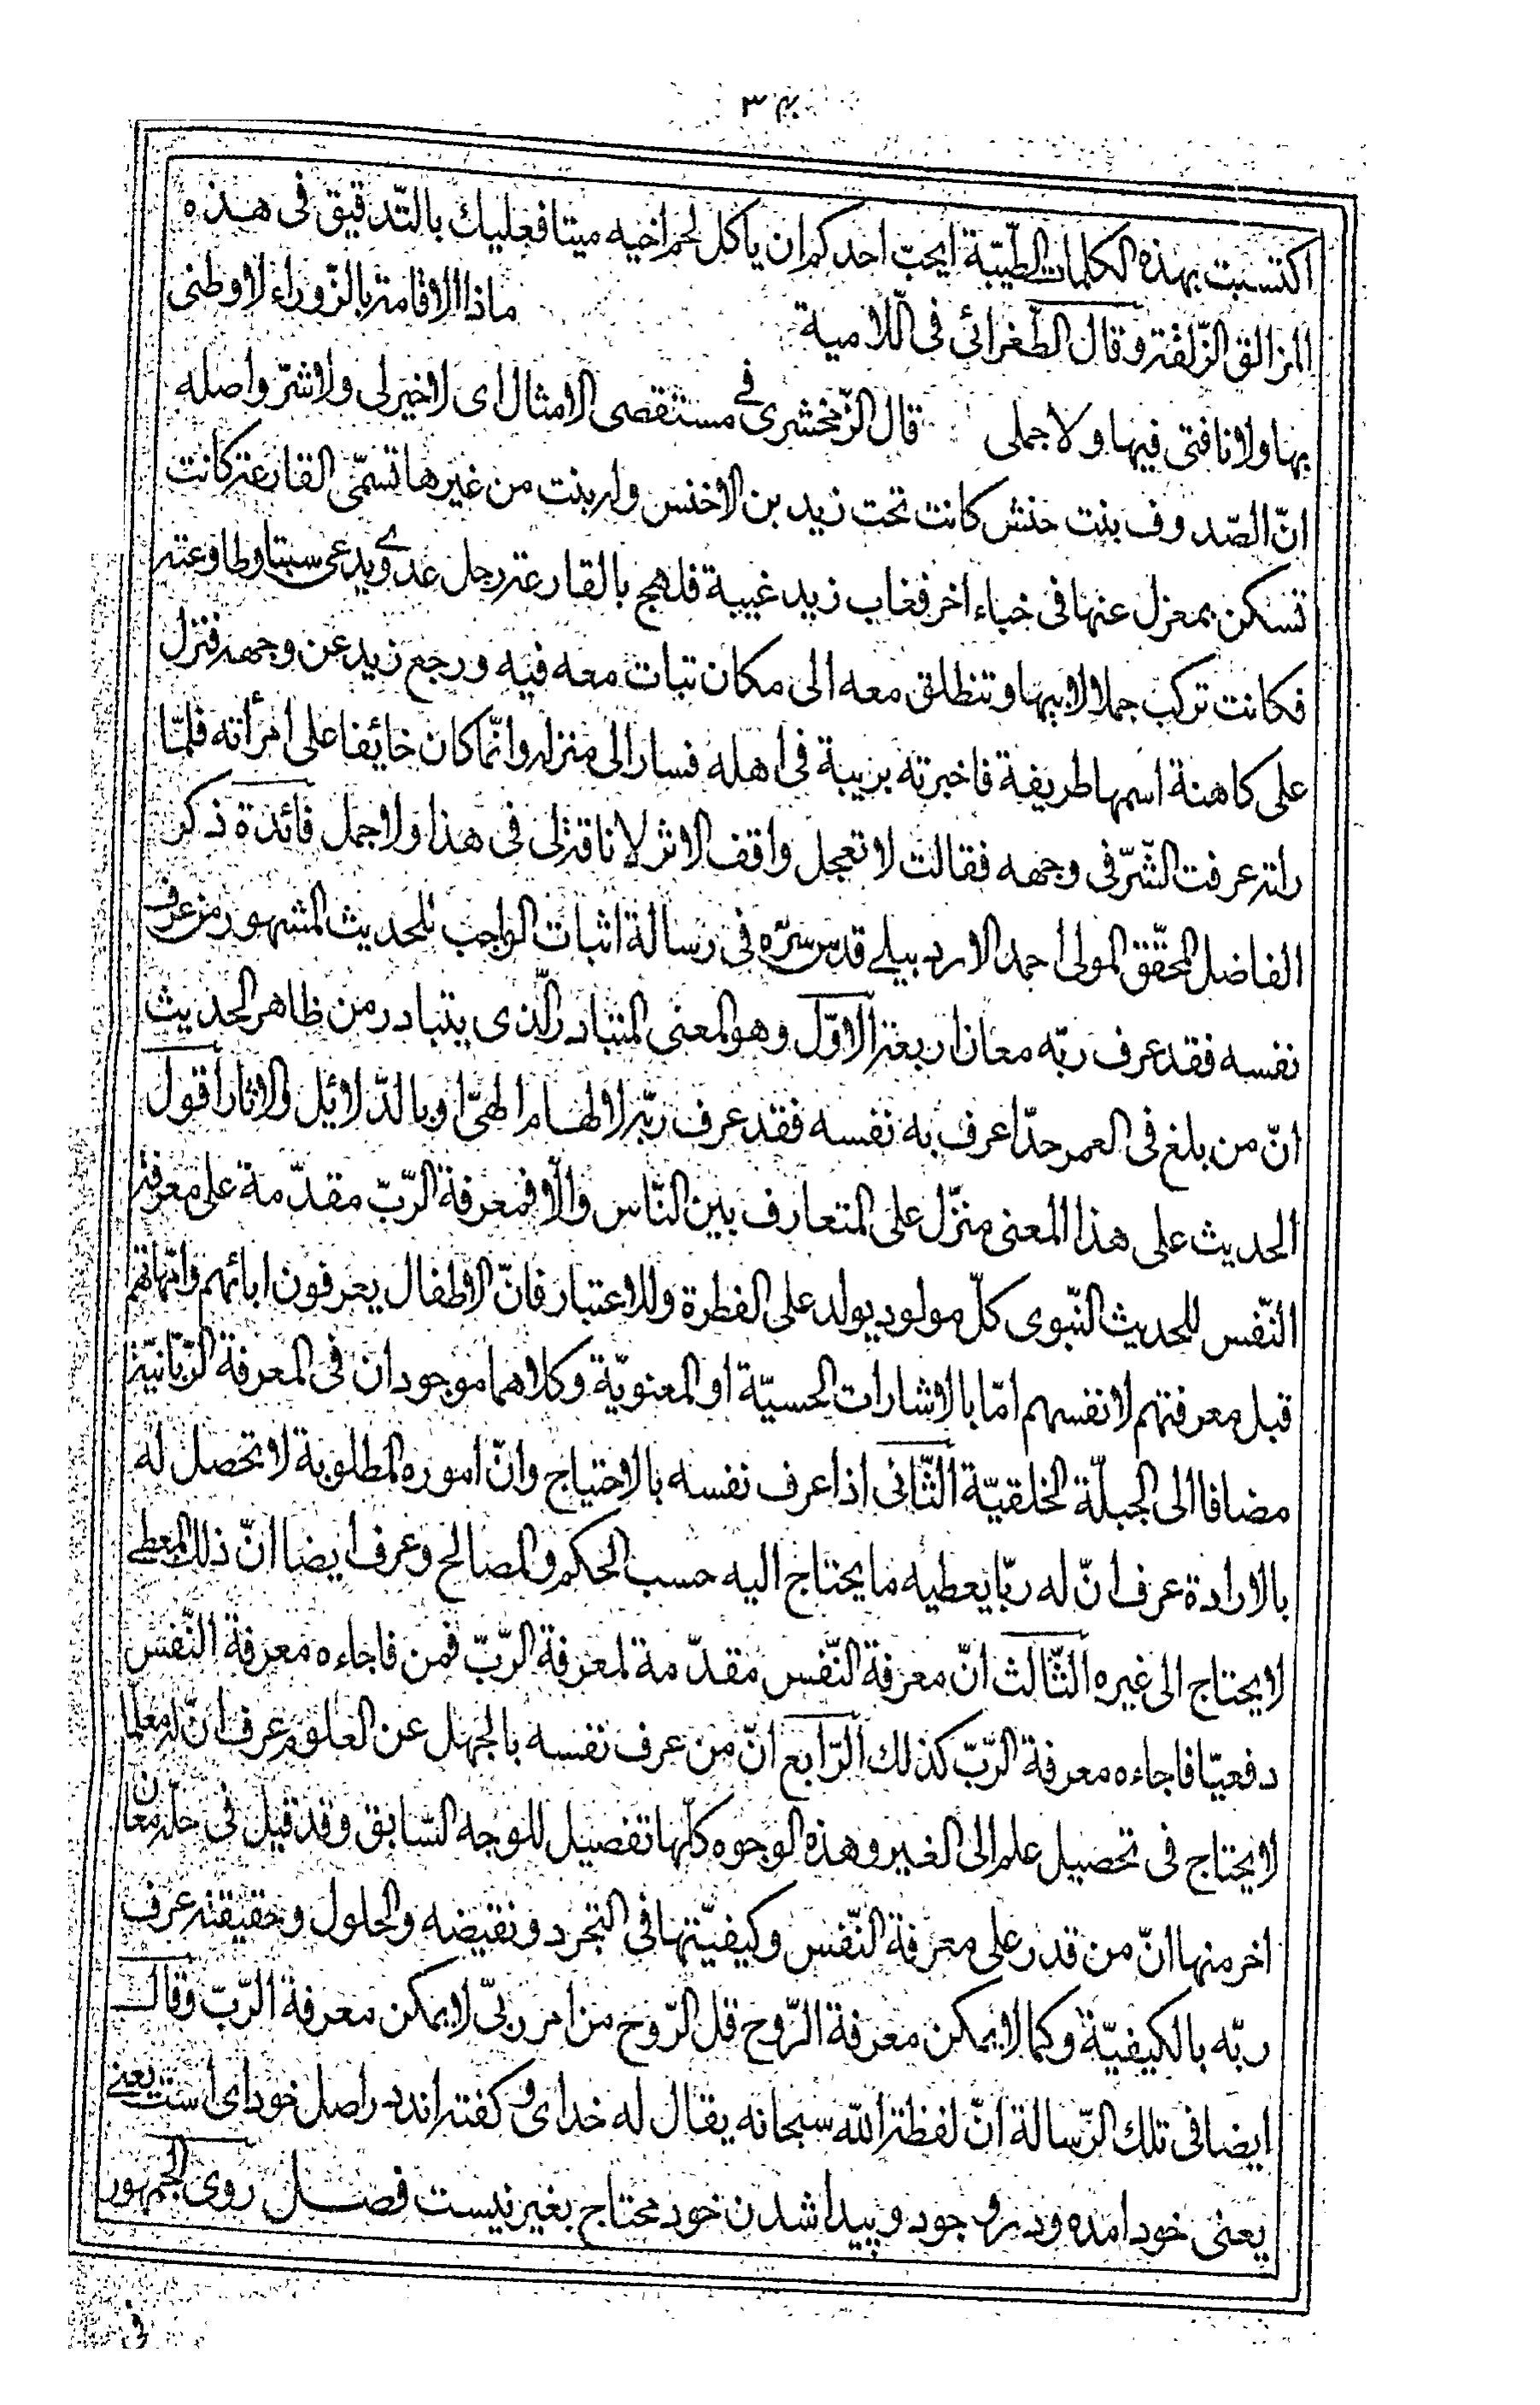 ٣٤
اكتسبت بهذه الكلمات الطّيّبة ايحبّ احدكم ان ياكل لحم اخيه ميتا فعليك بالتّدقيق فى هذه
المزالق الزّلفة وقال الطّغرائى فى اللّامية ماذا الاقامة بالزّوراء لا وطنى
بها ولا ناقتى فيها ولا جملى قال الزّمخشرى فى مستقصى الامثال اى لا خير لى ولا شرّ واصله
انّ الصّدوف بنت حنش كانت تحت زيد بن الاخنس وله بنت من غيرها تسمّى القارعة كانت
تسكن بمعزل عنها فى خباء اخر فغاب زيد غيبة فلهج بالقارعة رجل عدوى يدعى سبتا وطاوعته
فكانت تركب جملا لابيها وتنطلق معه الى مكان تبات معه فيه ورجع زيد عن وجهه فنزل
على كاهنة اسمها طريفة فاخبرته بريبة فى اهله فسار الى منزله وانّما كان خائفا على امرأته فلمّا
راته عرفت الشّرّ فى وجهه فقالت لا تعجل واقف الاثر لا ناقة لى فى هذا ولا جمل فائدة ذكر
الفاضل المحقّق المولى احمد الاردبيلى قدس سرّه فى رسالة اثبات الواجب للحديث المشهور من عرف
نفسه فقد عرف ربّه معان اربعة الاوّل وهو المعنى المتبادر الّذى يتبادر من ظاهر الحديث
انّ من بلغ فى العمر حدّا عرف به نفسه فقد عرف ربّه لالهام الهىّ او بالدّلائل والاثار اقول
الحديث على هذا المعنى منزّل على المتعارف بين النّاس والّا فمعرفة الرّبّ مقدّمة على معرفة
النّفس للحديث النّبوى كلّ مولود يولد على الفطرة وللاعتبار فانّ الاطفال يعرفون ابائهم وامّهاتهم
قبل معرفتهم لانفسهم امّا بالاشارات الحسيّة او المعنويّة وكلاهما موجودان فى المعرفة الرّبّانيّة
مضافا الى الجبلّة الخلقيّة الثّانى اذا عرف نفسه بالاحتياج وانّ اموره المطلوبة لا تحصل له
بالارادة عرف انّ له ربّا يعطيه ما يحتاج اليه حسب الحكم والمصالح وعرف ايضا انّ ذلك المعطى
لا يحتاج الى غيره الثّالث انّ معرفة النّفس مقدّمة لمعرفة الرّبّ فمن فاجاءه معرفة النّفس
دفعيّا فاجاءه معرفة الرّبّ كذلك الرّابع انّ من عرف نفسه بالجهل عن العلوم عرف انّ له معلّما
لا يحتاج فى تحصيل علم الى الغير وهذه الوجوه كلّها تفصيل للوجه السّابق وقد قيل فى حلّه معان
اخر منها انّ من قدر على معرفة النّفس وكيفيّتها فى التّجرد ونقيضه والحلول وحقيقته عرف
ربّه بالكيفيّة وكما لا يمكن معرفة الرّوح قل الرّوح من امر ربّى لا يمكن معرفة الرّبّ وقال
ايضا فى تلك الرّسالة انّ لفظة اللّه سبحانه يقال له خداى و كفته اند در اصل خوداى است يعنى
يعنى خود امده ودر وجود و پيدا شدن خود محتاج بغير نيست فصل روى الجمهور
فى